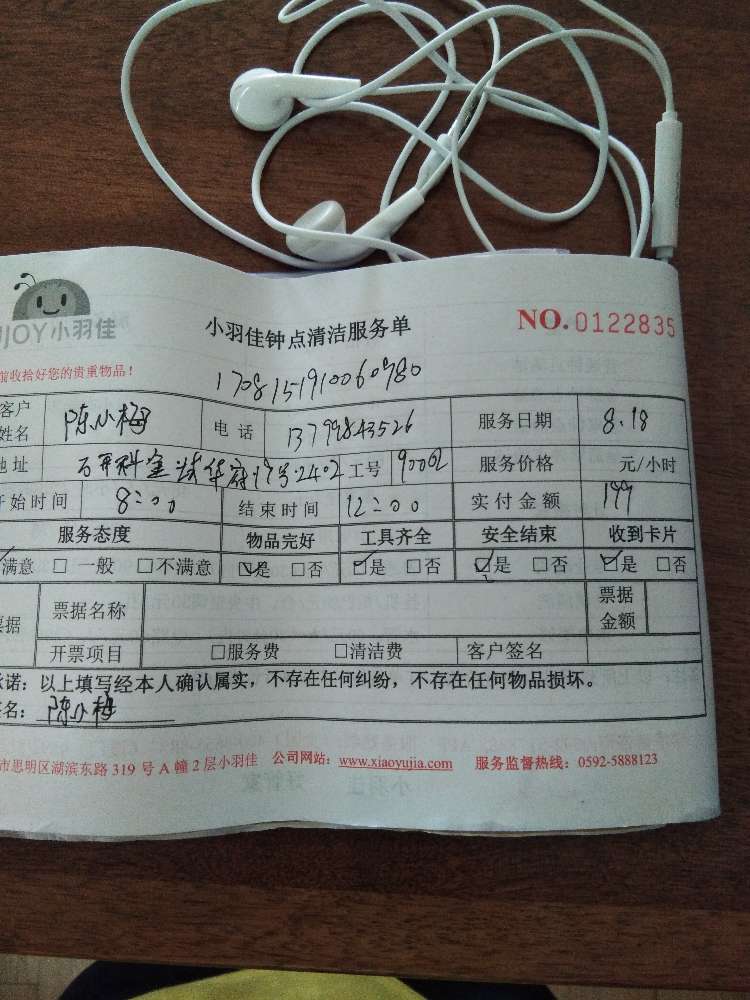 JOY小羽佳
小羽佳钟点清洁服务单
NO.0122835
前收拾好您的贵重物品！
1708151910060980
客户姓名 陈小梅 电话 13799843526 服务日期 8.18
地址 19号2402 工号 90062 服务价格 元/小时
开始时间 8:00 结束时间 12:00 实付金额 199
服务态度 物品完好 工具齐全 安全结束 收到卡片
满意 □一般 □不满意 ☑是 □否 ☑是 □否 ☑是 □否 ☑是 □否
票据 票据名称 票据金额
开票项目 □服务费 □清洁费 客户签名
承诺：以上填写经本人确认属实，不存在任何纠纷，不存在任何物品损坏。
签名：陈小梅
市思明区湖滨东路 319 号 A 幢 2 层小羽佳 公司网站：www.xiaoyujia.com 服务监督热线：0592-5888123